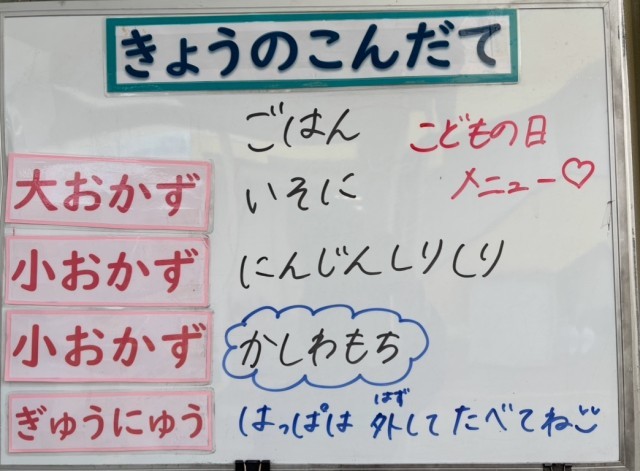 きょうのこんだて
ごはん
こどもの日
メニュー♡
大おかず いそに
小おかず にんじんしりしり
小おかず かしわもち
ぎゅうにゅう はっぱは 外してたべてね
はず